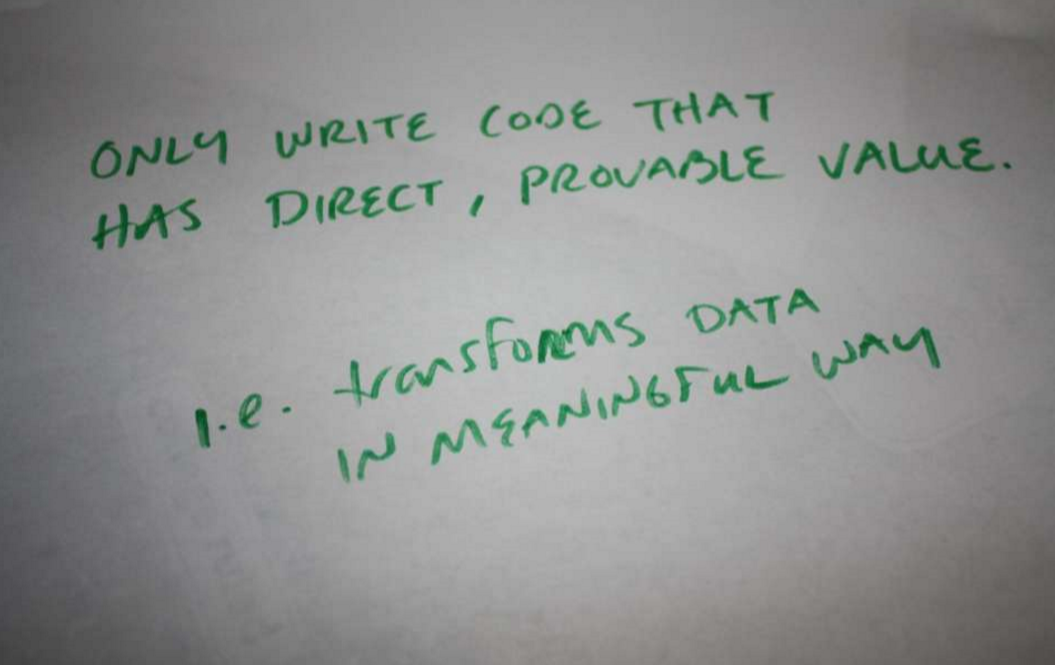 ONLY WRITE CODE THAT
HAS DIRECT, PROVABLE VALUE.
i.e. transforms DATA
IN MEANINGFUL WAY